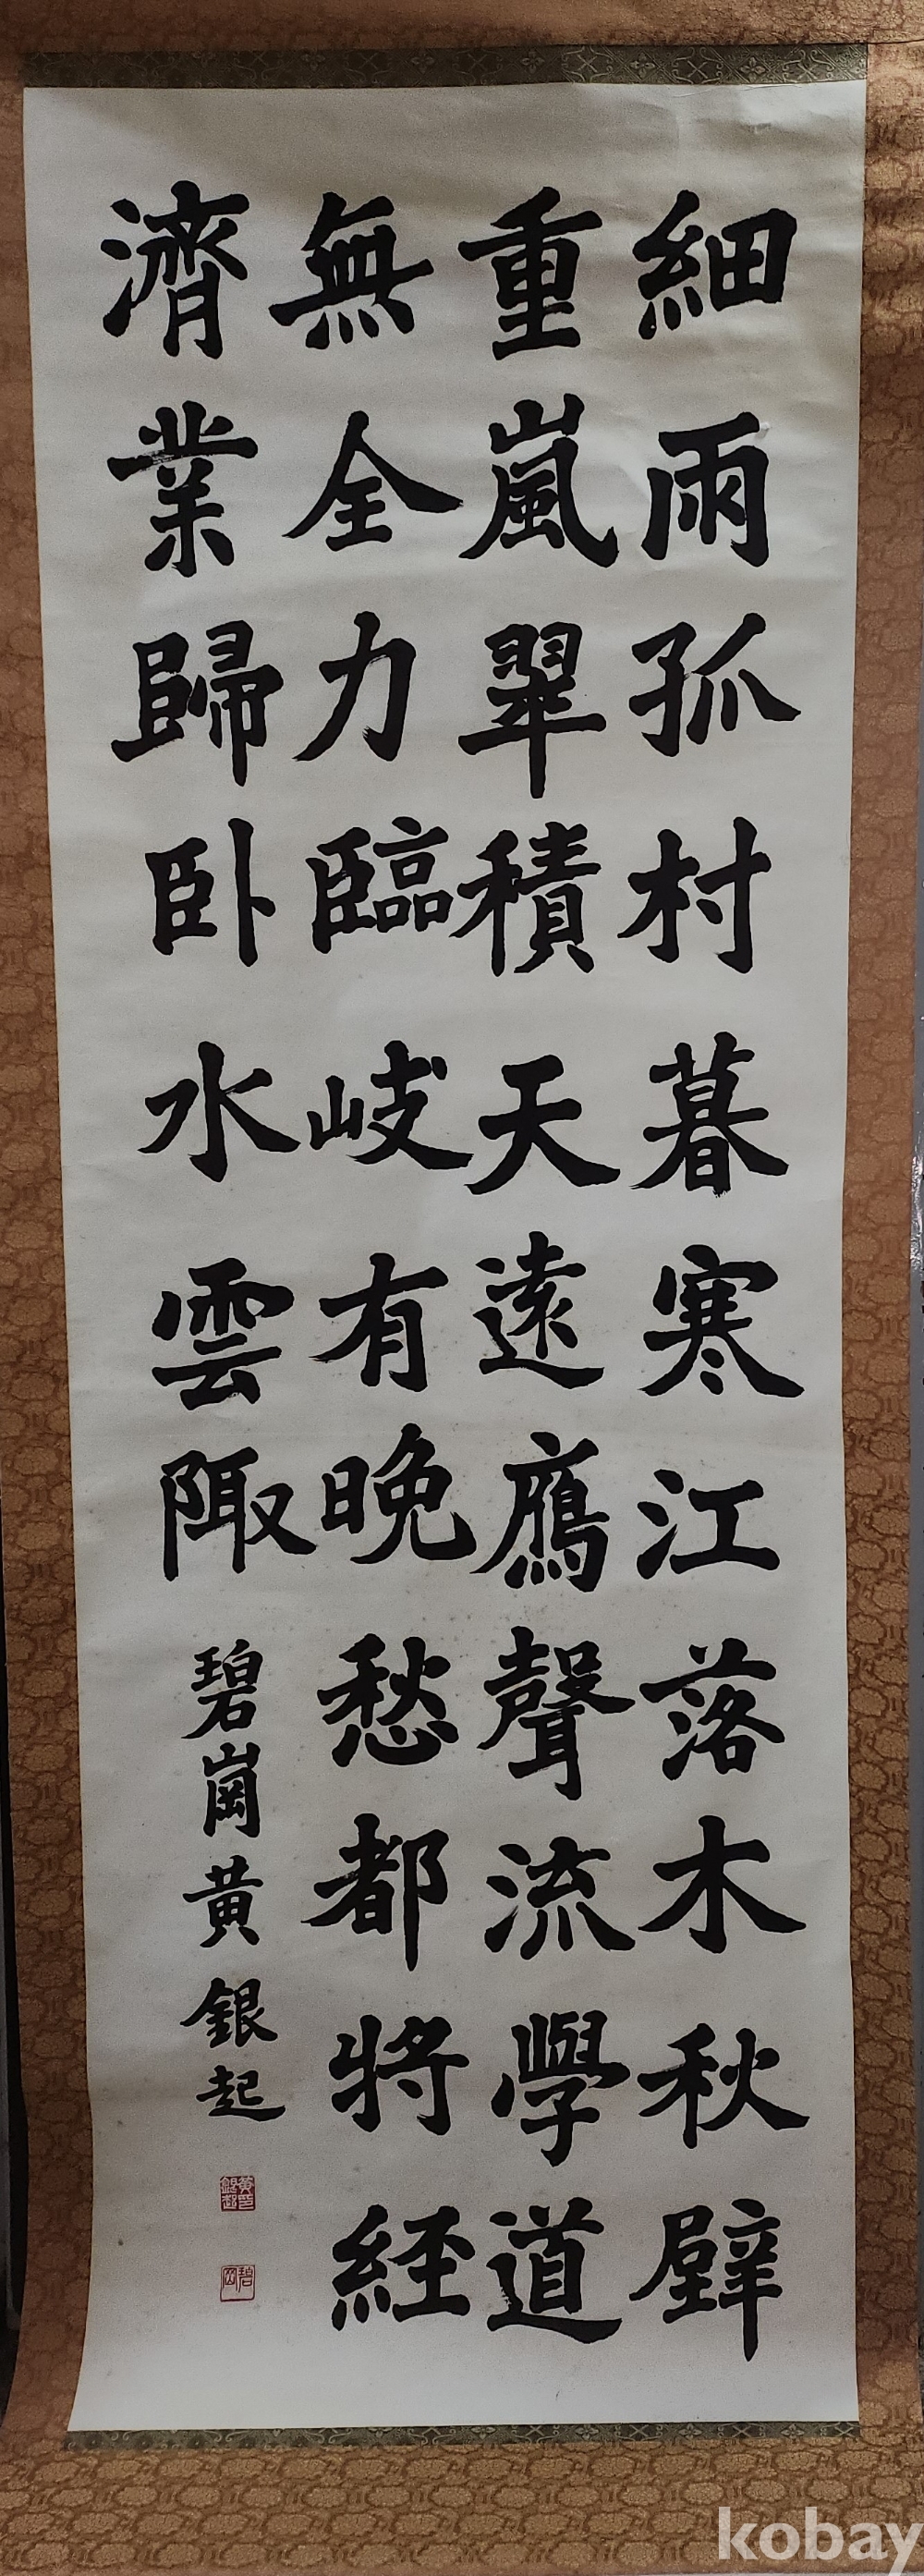 細雨孤村暮寒江落木秋壁
重嵐翠積天遠鴈聲流學道
無全力臨岐有晩愁都將経
濟業歸卧水雲陬
碧崗黄銀起
黄銀起印
碧岡
kobay